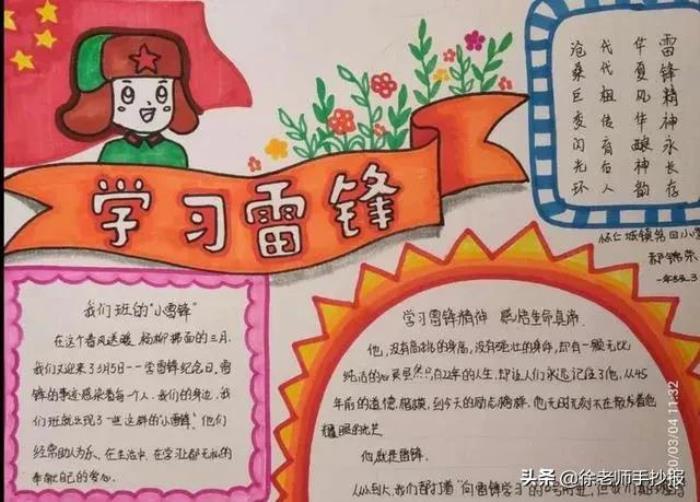 学习雷锋
雷锋精神永长存
华夏风华酿神韵
代代祖传育后人
沧桑巨变闪光环
我们班的"小雷锋"
在这个春风送暖,杨柳拂面的三月.
我们又迎来了3月5日——学雷锋纪念日,雷
锋的事迹感染着每个人,我们的身边,我
们班就出现了一些这样的"小雷锋".他们
经常助人为乐、在生活中、在学习上都无私的
奉献自己的爱心.
学习雷锋精神 感悟生命真谛
他,没有高挑的身高,没有强壮的身体,却有一颗无比
纯洁的心灵虽然只有22年的人生,却让人们永远记住了他,从45
年前的道德楷模,到今天的励志榜样.他无时无刻不在散发着色
耀眼的光芒
他就是雷锋.
从小到大,我们都打着"向雷锋学习"的
2020/03/04 11:32
头条@徐老师手抄报